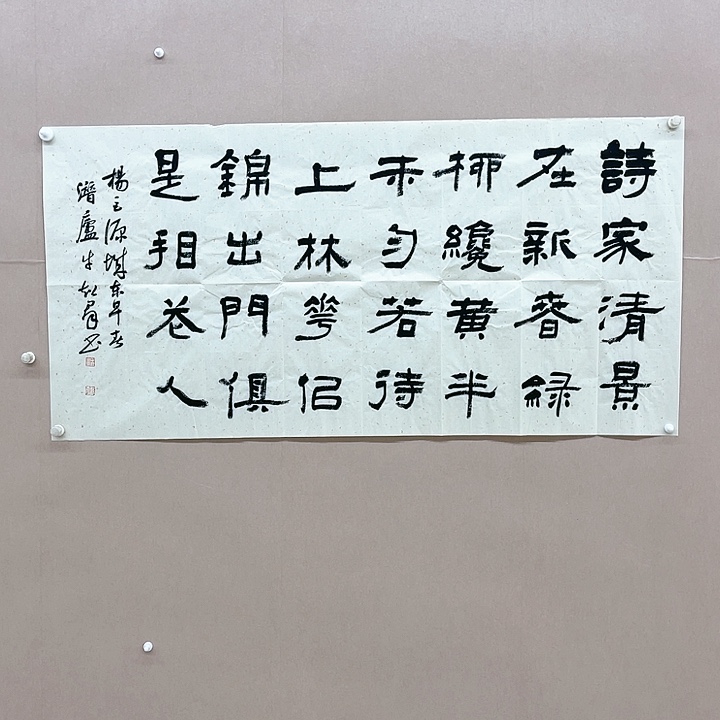 詩家清景
在新春綠
柳纔黃半
未勻若待
上林花佀
錦出門俱
是看花人
楊巨源城東早春
濬廬牛